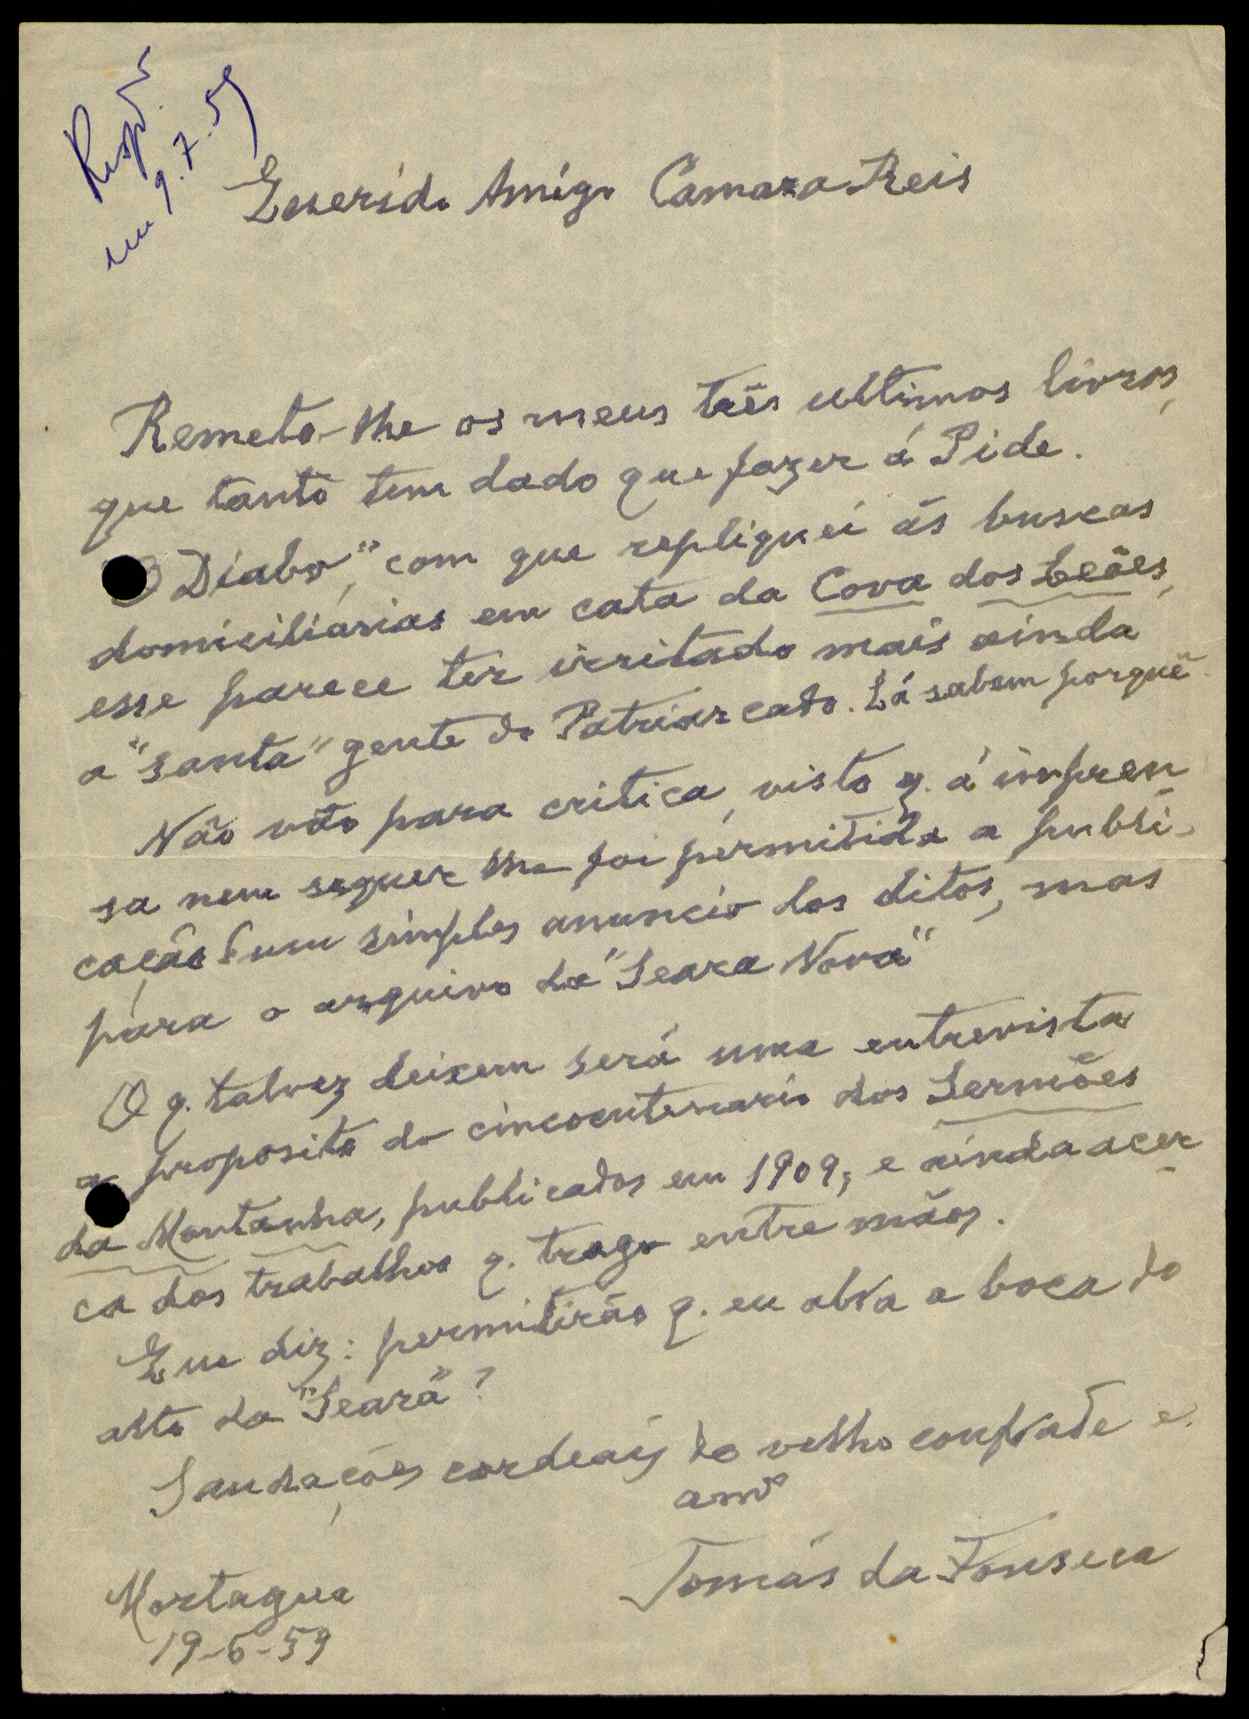 Resp.
em 9.7.59
Querido Amigo Camara Reis
Remeto-lhe os meus três ultimos livros,
que tanto tem dado que fazer á Pide.
O Diabo", com que repliquei ás buscas
domiciliárias em cata da Cova dos Leões,
esse parece ter irritado mais ainda
a "santa" gente do Patriarcado. Lá sabem porquê.
Não vão para critica, visto q. á impren
sa nem sequer lhe foi permitida a publi-
cação dum simples anuncio dos ditos, mas
para o arquivo da "Seara Nova"
O q. talvez deixem será uma entrevista
a proposito do cincoentenario dos Sermões
da Montanha, publicados em 1909, e ainda acer
ca dos trabalhos q. trago entre mãos.
Que diz: permitirão q. eu abra a boca do
alto da "Seara"?
Saudações cordeais do velho confrade e
amº
Tomás da Fonseca
Mortagua
19-6-59